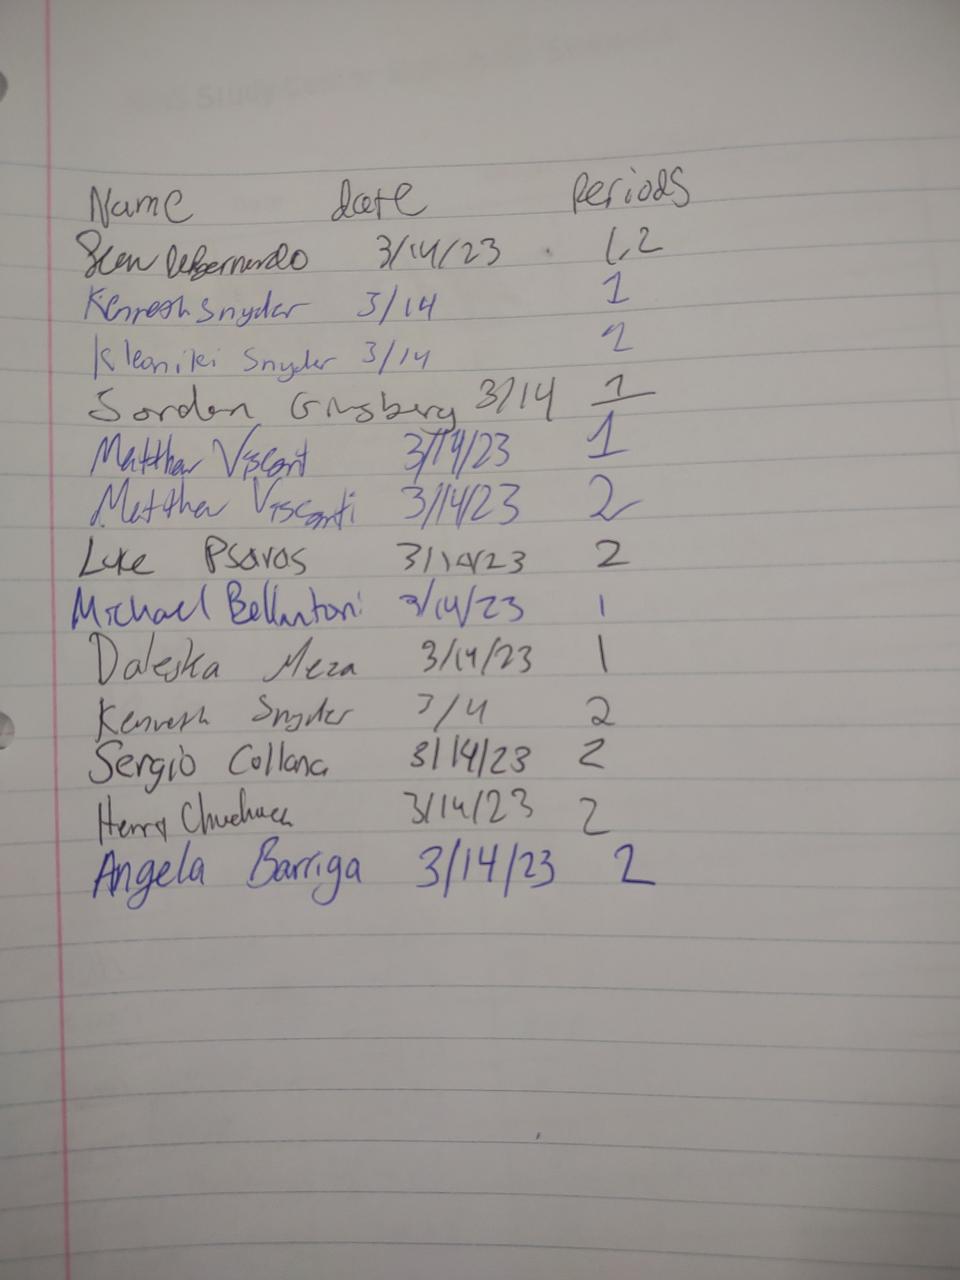 Name date Periods
Sean DeBernardo 3/14/23 1,2
Kenneth Snyder 3/14 1
Kleoniki Snyder 3/14 2
Jordan Ginsberg 3/14 1
Matthew Viscont 3/14/23 1
Matthew Visconti 3/14/23 2
Luke Psaros 3/14/23 2
Michael Bellantoni 3/14/23 1
Daleska Meza 3/14/23 1
Kenneth Snyder 3/14 2
Sergio Collana 3/14/23 2
Henry 3/14/23 2
Angela Barriga 3/14/23 2